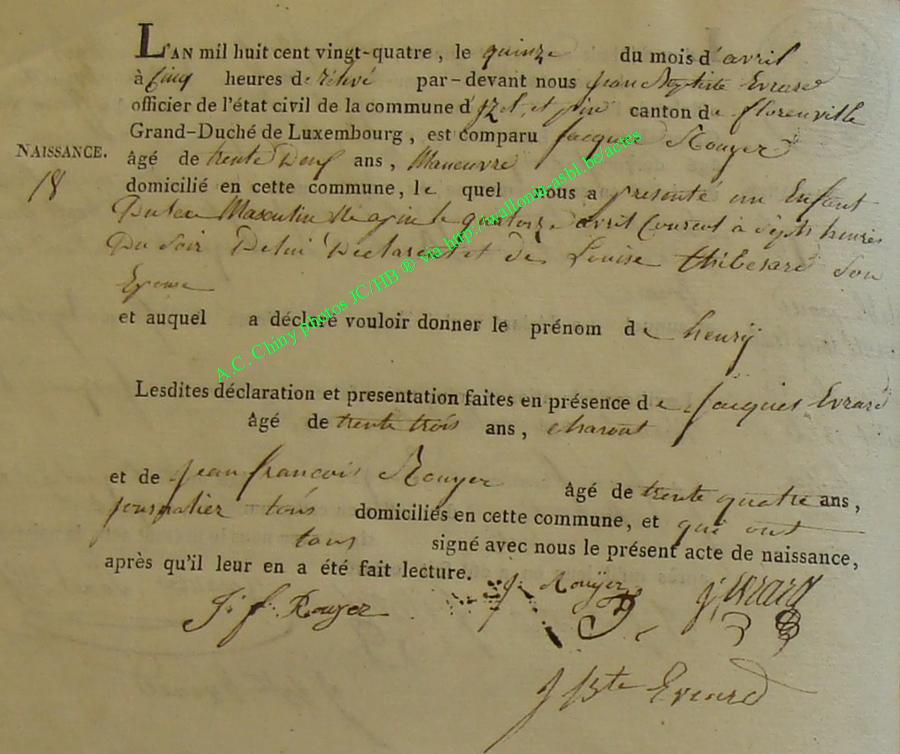 L'AN mil huit cent vingt-quatre, le quinze du mois d'avril
à Cinq heures de rélivé par-devant nous Jean Baptiste Evrard
officier de l'état civil de la commune d'izel, et pin canton de florenville
Grand-Duché de Luxembourg, est comparu Jacques Rouyer
NAISSANCE.
18
âgé de trente Deuf ans, Maneuvre
domicilié en cette commune, le quel nous a presenté un Enfant
Du sexe Masculin Né a pin le quatorze avril Courent à sept heures
Du Soir De lui Declarent et de Louise thibesard Son
Epouse
et auquel a déclaré vouloir donner le prénom de henrÿ
Lesdites déclaration et presentation faites en présence de Jacques Evrard
âgé de trente trois ans, charont
et de Jean francois Rouyer âgé de trente quatre ans,
journalier tous domiciliés en cette commune, et qui ont
tous signé avec nous le présent acte de naissance,
après qu'il leur en a été fait lecture.
J. f. Rouyer j. Rouÿer j. evrard
J Bte Evrard
A.C. Chiny photos JC/HB ® via http://wallonia-asbl.be/actes